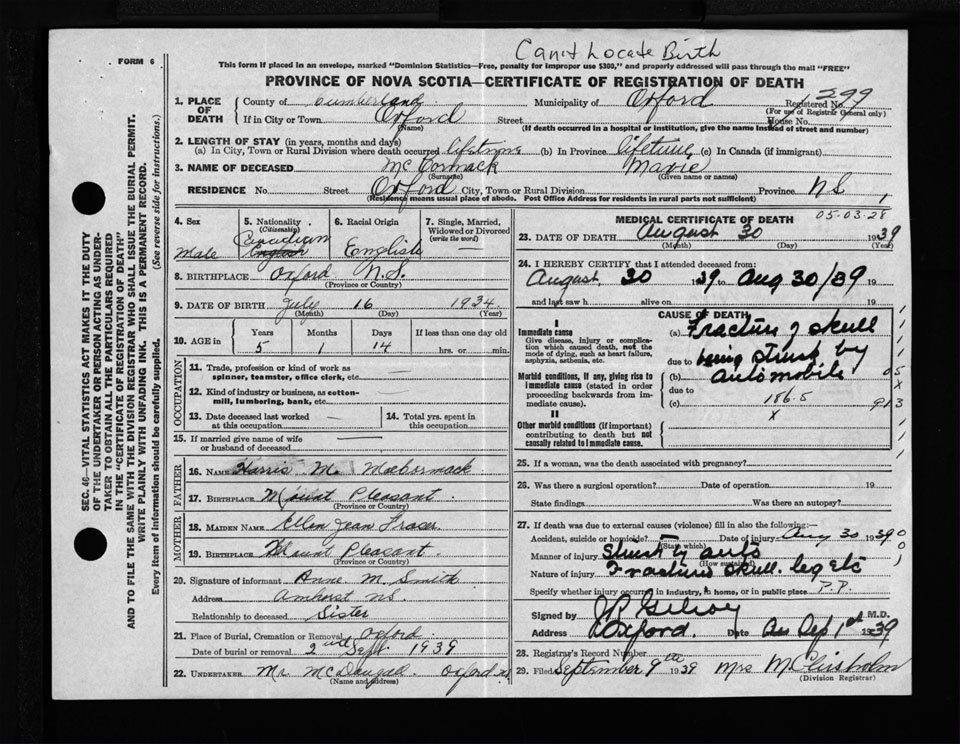 Can't Locate Birth
FORM 6
This form if placed in an envelope, marked "Dominion Statistics—Free, penalty for improper use $300," and properly addressed will pass through the mail "FREE"
PROVINCE OF NOVA SCOTIA—CERTIFICATE OF REGISTRATION OF DEATH
1. PLACE OF DEATH County of Cumberland Municipality of Oxford Registered No. 1299
(For use of Registrar General only)
If in City or Town Oxford Street House No.
(Name) (If death occurred in a hospital or institution, give the name instead of street and number)
2. LENGTH OF STAY (in years, months and days)
(a) In City, Town or Rural Division where death occurred Lifetime (b) In Province Lifetime (c) In Canada (if immigrant)
3. NAME OF DECEASED McCormack
(Surname) (Given name or names)
RESIDENCE No. Street Oxford City, Town or Rural Division Province NS
(Residence means usual place of abode. Post Office Address for residents in rural parts not sufficient)
4. Sex Male
5. Nationality (Citizenship) Canadian English
6. Racial Origin English
7. Single, Married, Widowed or Divorced (write the word)
8. BIRTHPLACE Oxford N.S.
(Province or Country)
9. DATE OF BIRTH July 16 1934
(Month) (Day) (Year)
10. AGE in Years 5 Months 1 Days 14 If less than one day old hrs. or min.
OCCUPATION
11. Trade, profession or kind of work as spinner, teamster, office clerk, etc.
12. Kind of industry or business, as cotton-mill, lumbering, bank, etc.
13. Date deceased last worked at this occupation
14. Total yrs. spent in this occupation
15. If married give name of wife or husband of deceased
FATHER
16. NAME Harris M. MacCormack
17. BIRTHPLACE Mount Pleasant
(Province or Country)
MOTHER
18. MAIDEN NAME Ellen Jean Fraser
19. BIRTHPLACE Mount Pleasant
(Province or Country)
20. Signature of informant Anne M. Smith
Address Amherst NS
Relationship to deceased Sister
21. Place of Burial, Cremation or Removal Oxford
Date of burial or removal 2nd Sept 1939
22. UNDERTAKER Mr. McDougall Oxford NS
(Name and address)
MEDICAL CERTIFICATE OF DEATH
05-03-28
23. DATE OF DEATH August 30 1939
(Month) (Day) (Year)
24. I HEREBY CERTIFY that I attended deceased from:
August 30 1939 to Aug 30/39 19
and last saw h alive on 19
CAUSE OF DEATH
I
Immediate cause
Give disease, injury or complication which caused death, not the mode of dying, such as heart failure, asphyxia, asthenia, etc.
(a) Fracture of skull
due to being struck by
Morbid conditions, if any, giving rise to immediate cause (stated in order proceeding backwards from immediate cause).
(b) automobile
due to
(c) 186.5
X
05
X
913
II
Other morbid conditions (if important) contributing to death but not causally related to immediate cause.
25. If a woman, was the death associated with pregnancy?
26. Was there a surgical operation? Date of operation 19
State findings Was there an autopsy?
27. If death was due to external causes (violence) fill in also the following:—
Accident, suicide or homicide? Date of injury Aug 30 1939
(State which)
Manner of injury Struck by auto
(How sustained)
Nature of injury Fracture skull. leg etc
Specify whether injury occurred in industry, in home, or in public place P.P.
Signed by M.D.
Address Oxford. Date Sep 1st 1939
28. Registrar's Record Number
29. Filed September 9th 1939 Mrs M Chisholm
(Division Registrar)
SEC. 46—VITAL STATISTICS ACT MAKES IT THE DUTY
OF THE UNDERTAKER OR PERSON ACTING AS UNDERTAKER
TO OBTAIN ALL THE PARTICULARS REQUIRED
IN THE "CERTIFICATE OF REGISTRATION OF DEATH"
AND TO FILE THE SAME WITH THE DIVISION REGISTRAR WHO SHALL ISSUE THE BURIAL PERMIT.
WRITE PLAINLY WITH UNFADING INK. THIS IS A PERMANENT RECORD.
Every item of information should be carefully supplied. (See reverse side for instructions.)